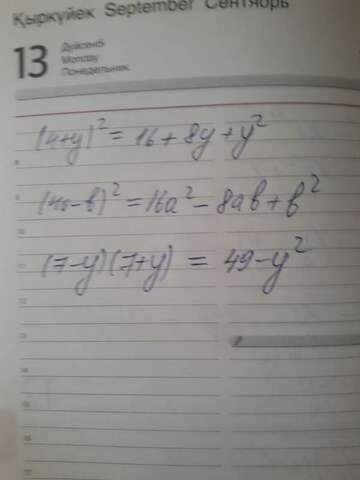 Қыркүйек September Сентябрь
13
Дүйсенбі
Monday
Понедельник
(4+y)² = 16 + 8y + y²
8
(4a-b)² = 16a² - 8ab + b²
9
10
(7-y)(7+y) = 49 - y²
11
12
13
14
15
16
17